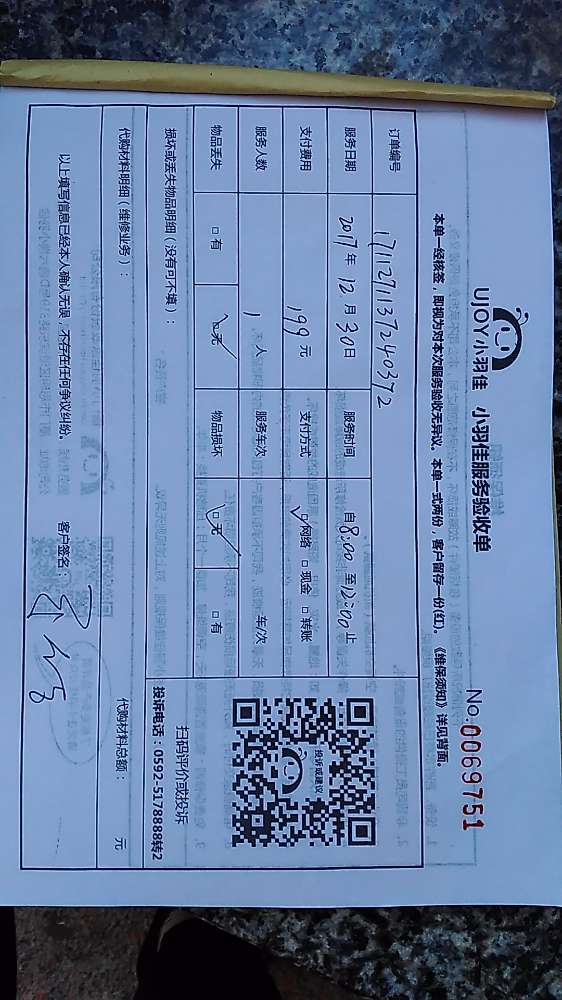 UJOY小羽佳 小羽佳服务验收单
No.0069751
本单一经核签，即视为对本次服务验收无异议。本单一式两份，客户留存一份(红)。《维保须知》详见背面。
订单编号 1711271137240372
服务日期 2017年12月30日 服务时间 自8:00至12:00止
支付费用 199元 支付方式 ☑网络 □现金 □转账
服务人数 1人 服务车次 车/次
物品丢失 □有 ☑无 物品损坏 ☑无 □有
损坏或丢失物品明细（没有可不填）：
投诉或建议
扫码评价或投诉
投诉电话：0592-5178888转2
代购材料明细（维修业务）： 代购材料总额： 元
以上填写信息已经本人确认无误，不存在任何争议纠纷。 客户签名：